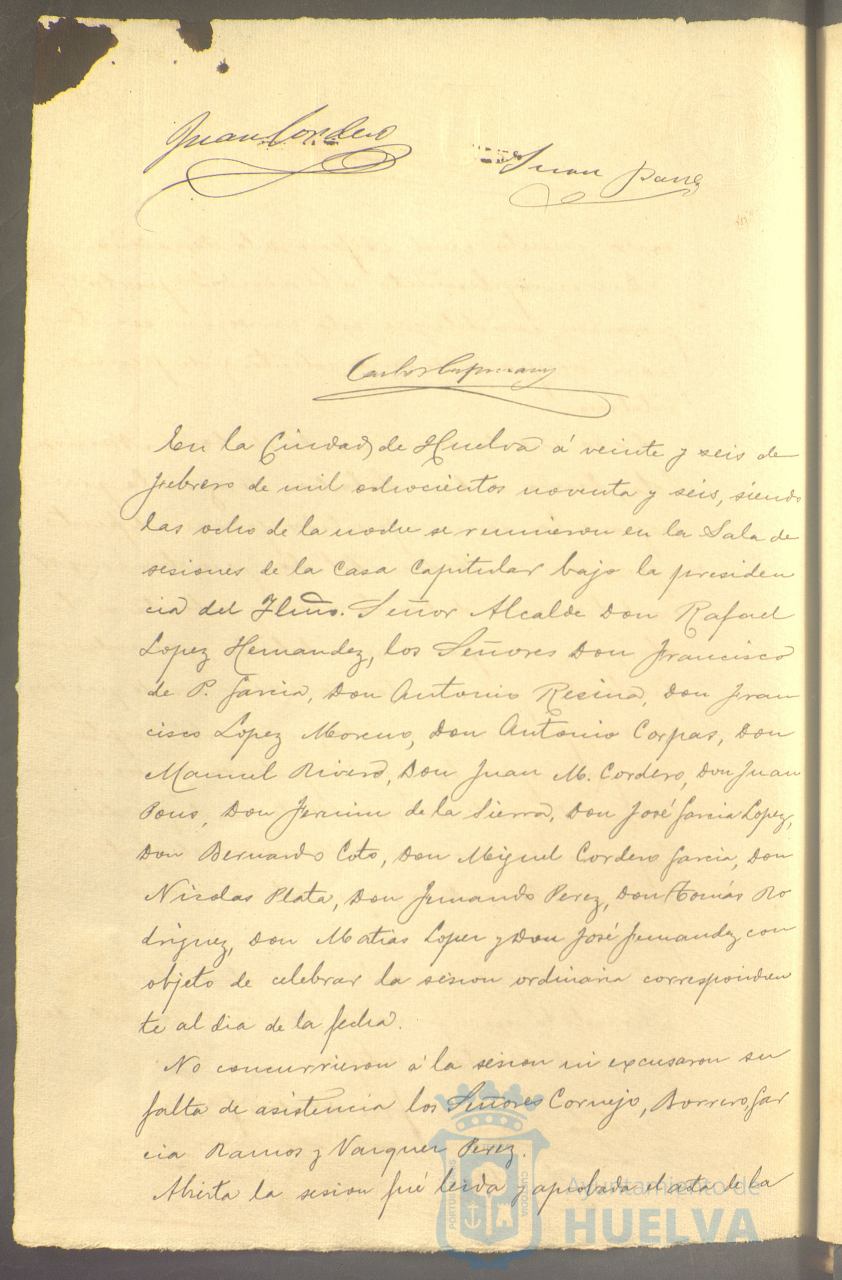 Juan Cordero
Juan Pons
Carlos
En la Ciudad de Huelva á veinte y seis de
febrero de mil ochocientos noventa y seis, siendo
las ocho de la noche se reunieron en la Sala de
sesiones de la Casa Capitular bajo la presiden
cia del Ilmo. Señor Alcalde Don Rafael
Lopez Hernandez, los Señores Don Francisco
de P. Garcia, Don Antonio Resina, Don Fran
cisco Lopez Moreno, Don Antonio Corpas, Don
Manuel Rivero, Don Juan M. Cordero, Don Juan
Pons, Don Fermin de la Sierra, Don José Garcia Lopez,
Don Bernardo Coto, Don Miguel Cordero Garcia, Don
Nicolas Plata, Don Fernando Perez, Don Tomás Ro
driguez, Don Matias Lopez y Don José Fernandez con
objeto de celebrar la sesion ordinaria correspondien
te al dia de la fecha.
No concurrieron á la sesion ni excusaron su
falta de asistencia los Señores Cornejo, Borrero, Gar
cia Ramos y Vazquez Perez.
Abierta la sesion fué leida y aprobada el acta de la
Ayuntamiento de
HUELVA